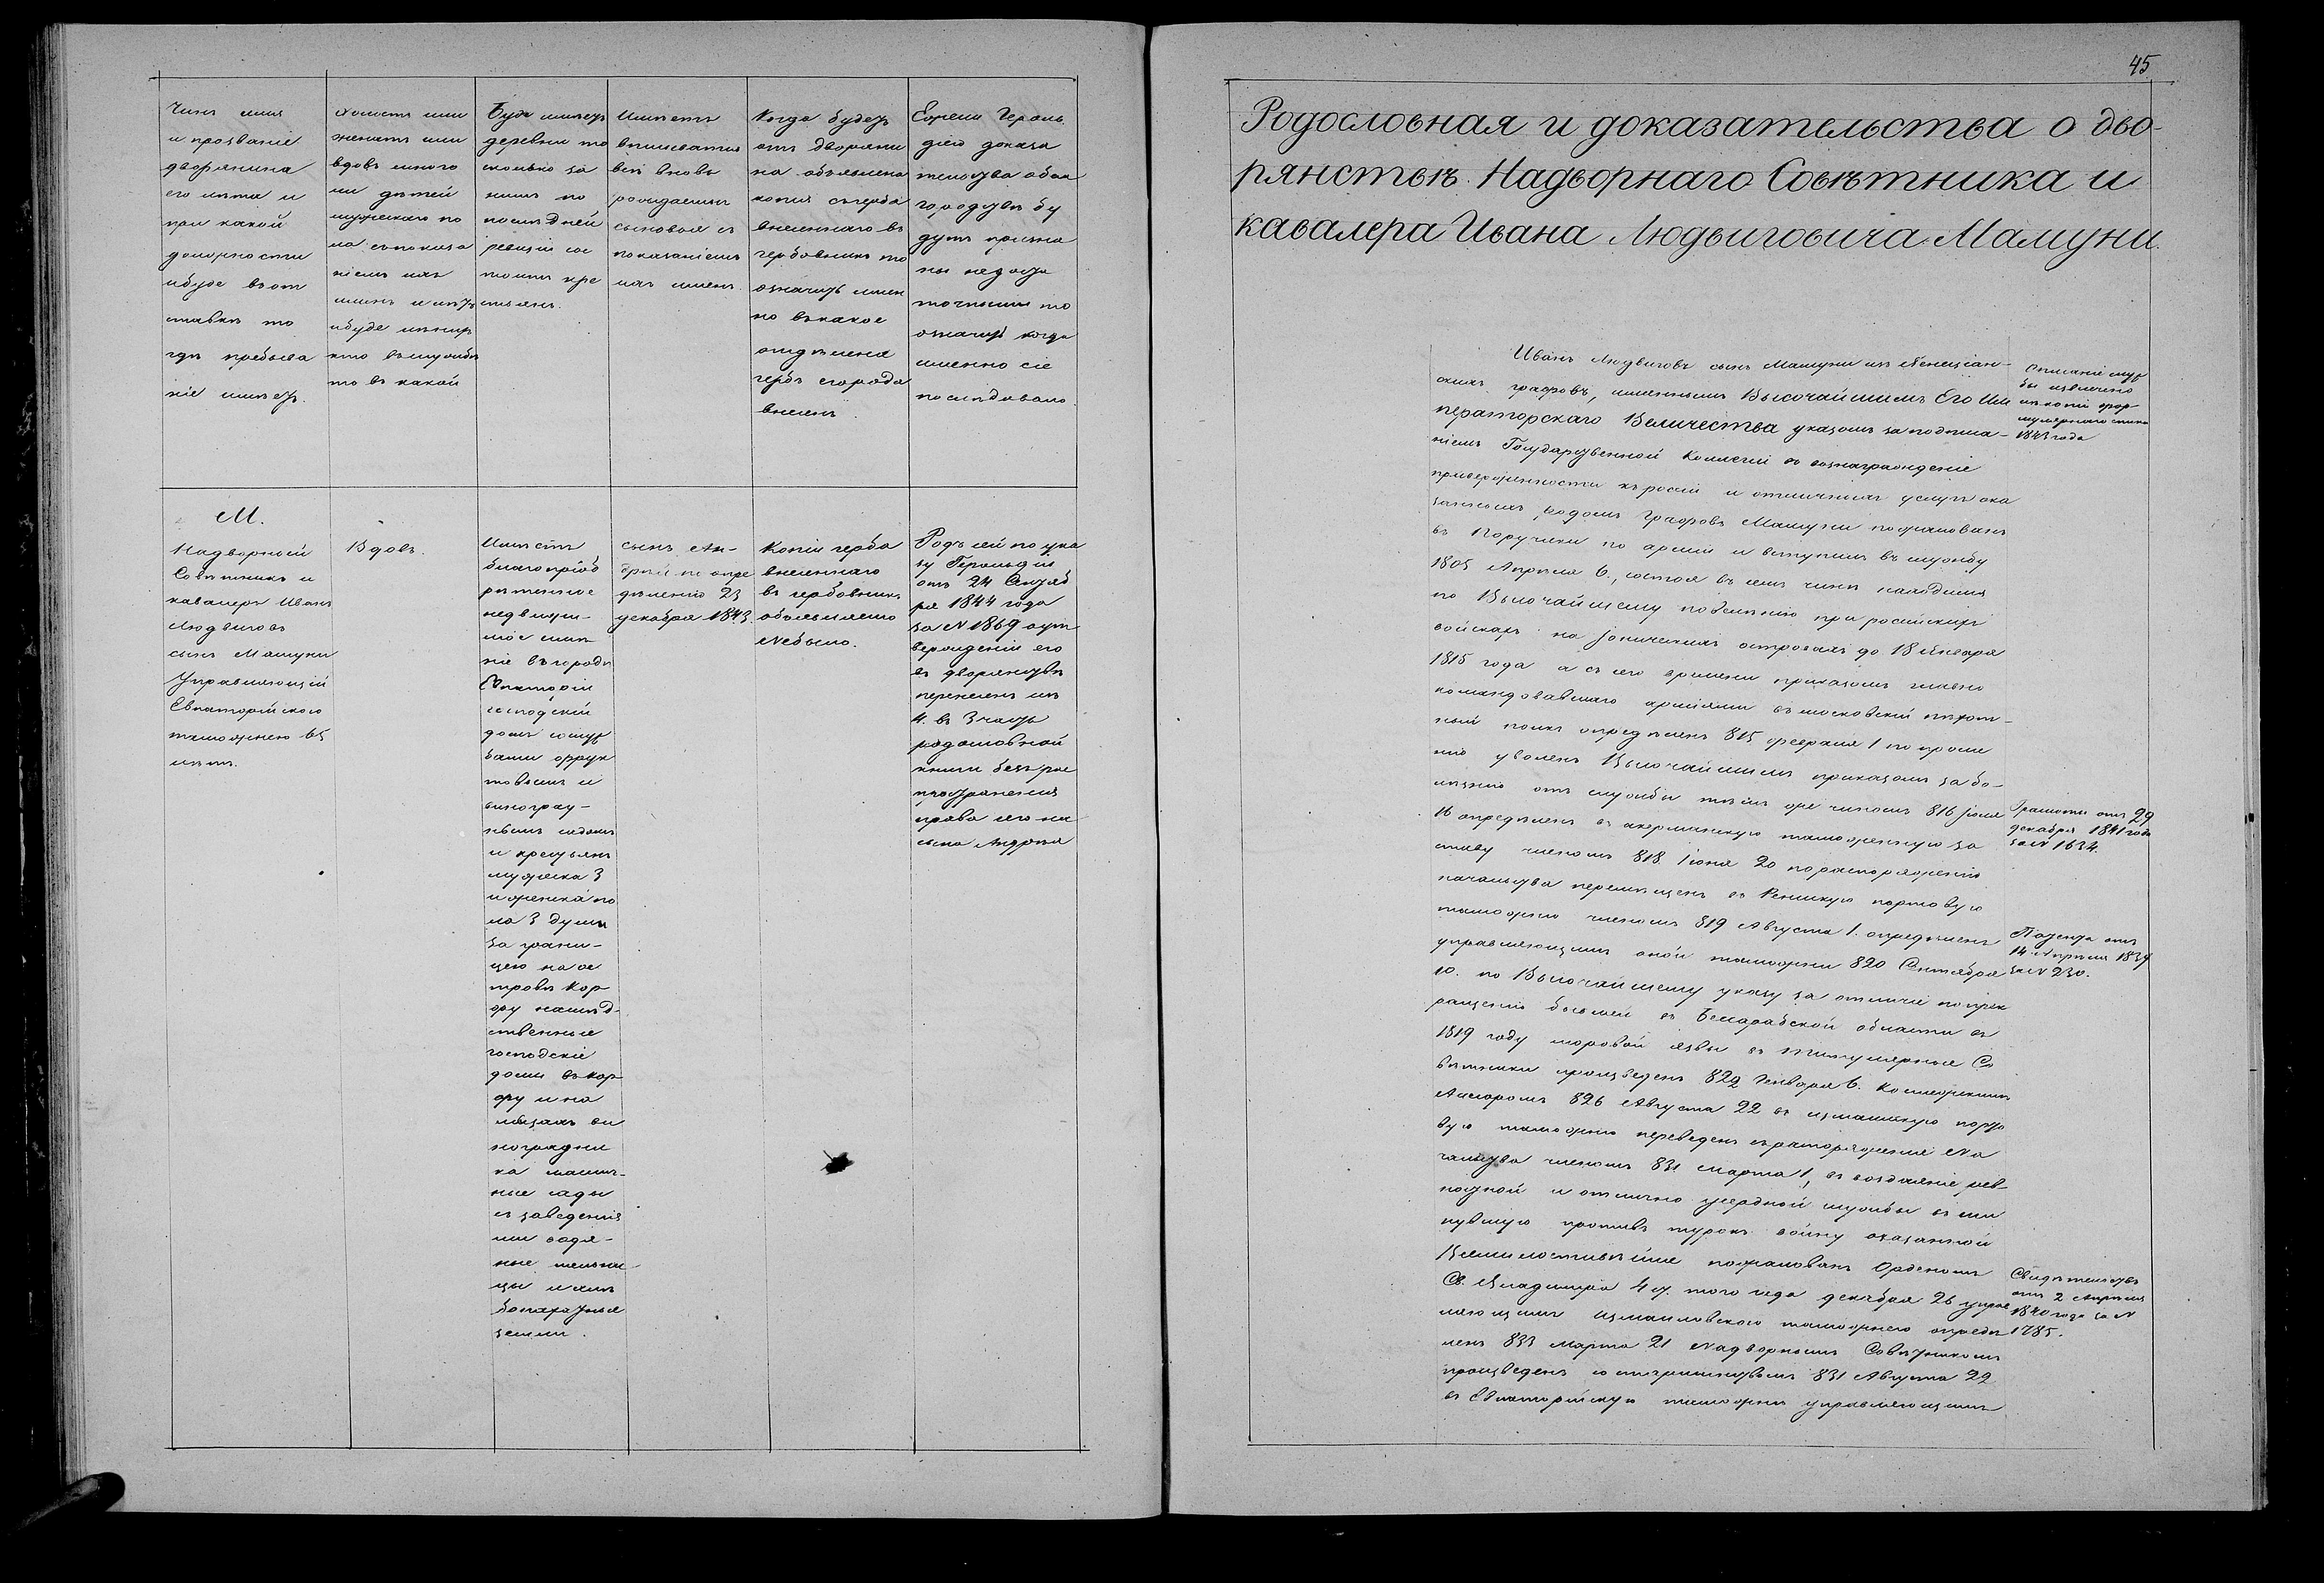 Чинъ имя
и прозваніе
дворянина
его лѣта и
при какой
должности
и буде въ от
ставкѣ то
гдѣ пребыва
ніе имѣетъ.
Холостъ или
женатъ или
вдовъ много
ли дѣтей
мужескаго по
ла съ показа
ніемъ ихъ
именъ и лѣтъ
и буде изъ нихъ
кто въ службѣ
то въ какой
Буде имѣетъ
деревни то
сколько за
нимъ по
послѣдней
ревизіи сос
тоитъ кре
стьянъ.
Имѣетъ
вписыватися
всѣ вновь
рождаемые
сыновья съ
показаніемъ
ихъ именъ.
Когда будетъ
отъ дворяни
на объявлена
копія съ герба
внесеннаго въ
гербовникъ то
означить имен
но въ какое
отдѣленіе
гербъ его рода
внесенъ.
Ежели Героль
діею доказа
тельства о бла
городствѣ бу
дутъ призна
ны недоста
точными то
означить когда
именно сіе
послѣдовало.
М.
Надворный
Совѣтникъ и
кавалеръ Иванъ
Людвиговъ
сынъ Мамуни
Управляющій
Евпаторійскою
таможнею 65
лѣтъ.
Вдовъ.
Имѣетъ
благопріоб
рѣтенное
недвижи-
мое имѣ
ніе въ городѣ
Евпаторіи
господскій
домъ со служ
бами фрук
товымъ и
виноград-
нымъ садомъ
и крестьянъ
мужеска 3
и женска по
ла 3 души
за грани-
цею на ос
тровѣ Кор
фу наслѣд-
ственные
господскіе
домы въ Кор
фу и на
мызахъ ви
ноградни
ки маслич-
ные сады
съ заведенія
ми водя-
ные мельни
цы и хлѣ
бопахатныя
земли.
сынъ Ан-
дрей по опре
дѣленію 23
декабря 1843
Копіи герба
внесеннаго
въ гербовникъ
объявляемо
не было.
Родъ сей по ука
зу Герольдіи
отъ 24 Октяб
ря 1844 года
за № 1869 о ут
вержденіи его
въ дворянствѣ
перенесенъ изъ
4. въ 3 часть
родословной
книги безъ рас
пространенія
права сего на
сына Андрея
45
Родословная и доказательства о дво-
рянствѣ Надворнаго Совѣтника и
кавалера Ивана Людвиговича Мамуни.
Иванъ Людвиговъ сынъ Мамуни изъ Венеціан-
скихъ графовъ, имяннымъ Высочайшимъ Его Им
ператорскаго Величества указомъ за подписа-
ніемъ Государственной Коллегіи въ вознагражденіе
приверженности къ россіи и отличныхъ услугъ ока
занныхъ родомъ графовъ Мамуни пожалованъ
въ Поручики по арміи и вступилъ въ службу
1805 Апрѣля 6., состоя въ семъ чинѣ находился
по Высочайшему повелѣнію при россійскихъ
войскахъ на Іоническихъ островахъ до 18 Января
1815 года а съ сего времени приказомъ главно
командовавшаго арміями въ московскій пѣхот-
ный полкъ опредѣленъ 815 февраля 1 по проше
нію уволенъ Высочайшимъ приказомъ за бо-
лѣзнію отъ службы тѣмъ же чиномъ 816 Іюня
16 опредѣленъ въ акерманскую таможенную за
ставу членомъ 818 Іюня 20 по распоряженію
начальства перемѣщенъ въ Ренискую портовую
таможню членомъ 819 Августа 1. опредѣленъ
управляющимъ оной таможни 820 Сентября
10. по Высочайшему указу за отличіе по прек
ращенію бывшей въ Бессарабской области въ
1819 году моровой язвы въ титулярные Со
вѣтники произведенъ 822 Генваря 6. Коллежскимъ
Ассесоромъ 826 Августа 22 въ измаильскую порто
вую таможню переведенъ съ распоряженія На
чальства членомъ 831 Марта 1, въ воздаяніе рев-
ностной и отлично усердной службы въ ми
нувшую противъ турокъ войну оказанной
Всемилостивѣйше пожалованъ Орденомъ
Св. Владиміра 4 ст. того года декабря 26 управ
ляющимъ измаиловскою таможнею опредѣ
ленъ 833 Марта 21 Надворнымъ Совѣтникомъ
произведенъ со старшинствомъ 831 Августа 22
въ Евпаторійскую таможню управляющимъ
Описаніе служ
бы извлечено
изъ копіи фор
мулярнаго списка
1843 года
Грамоты отъ 29
декабря 1841 года
за № 1634.
Патента отъ
14 Апрѣля 1834
за № 230.
Свидѣтельства
отъ 2 Апрѣля
1840 года за №
1785.